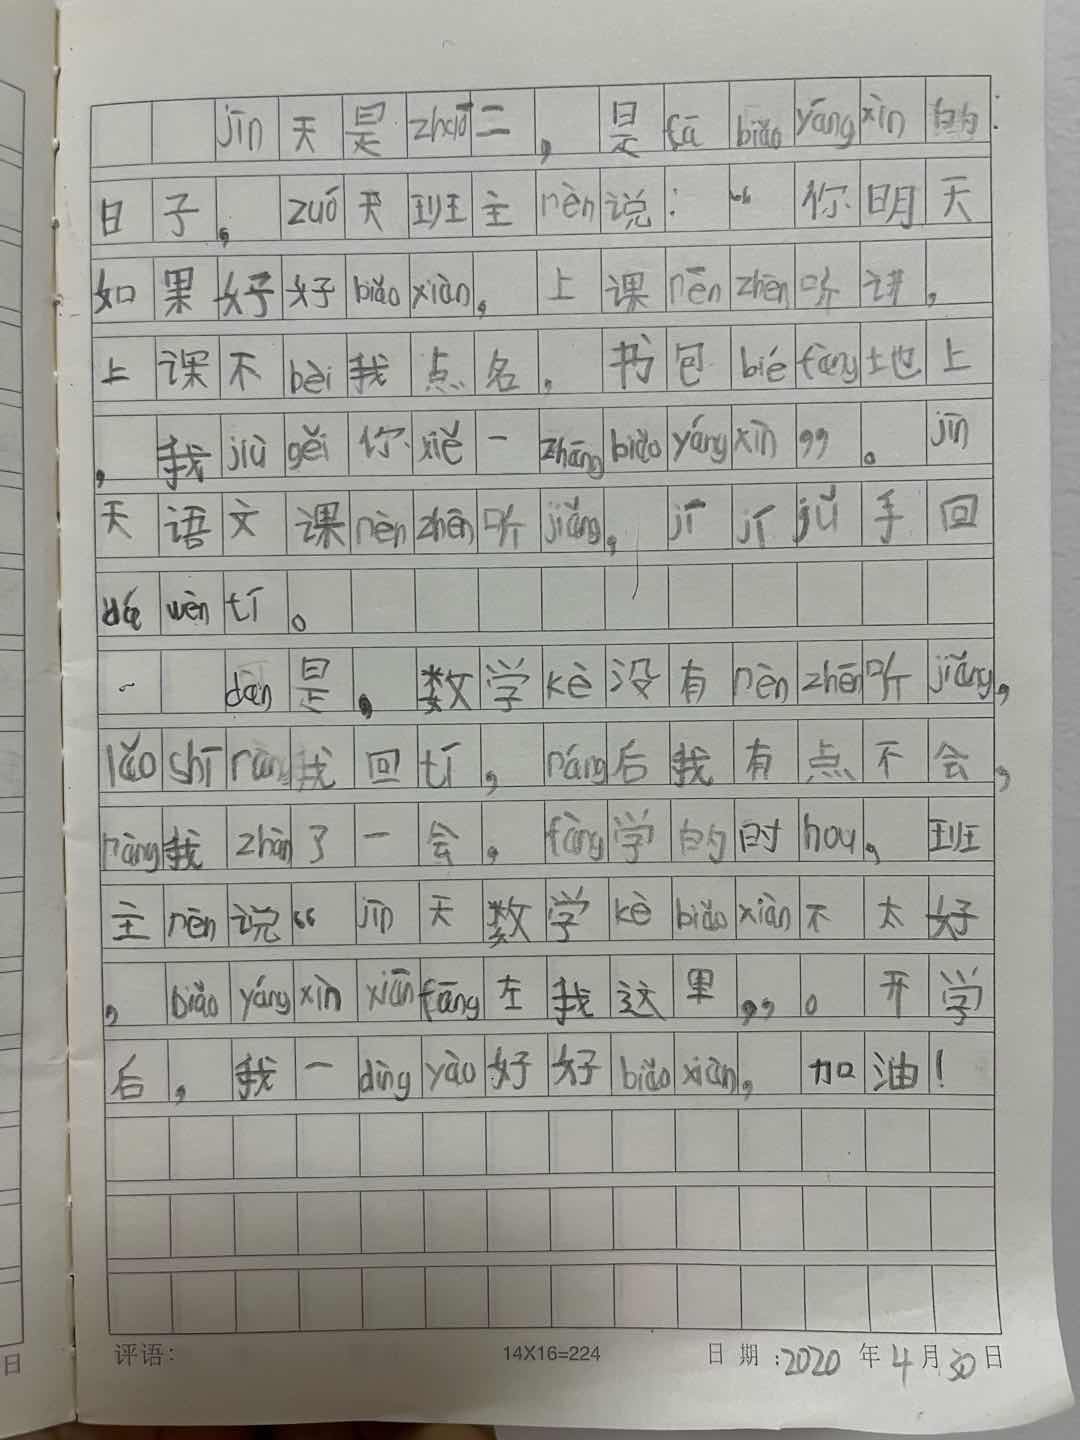 jīn天是zhōu二，是fā biǎo yáng xìn 的
日子，zuó天班主rèn说：“你明天
如果好好biǎo xiàn，上课rēn zhēn听讲，
上课不bèi我点名，书包bié fàng地上
，我jiù gěi你xiě一zhāng biǎo yáng xìn”。jīn
天语文课rèn zhēn听jiǎng，jī jī jǔ手回
dá wèn tí。
dàn是，数学kè没有rèn zhēn听jiǎng，
lǎo shī ràng我回tí，ráng后我有点不会，
ràng我zhàn了一会，fàng学的时hou，班
主rèn说“jīn天数学kè biǎo xiàn不太好
，biǎo yáng xìn xiān fāng在我这里”。开学
后，我一dìng yào好好biǎo xiàn，加油！
评语：
14X16=224
日期：2020年4月30日
日